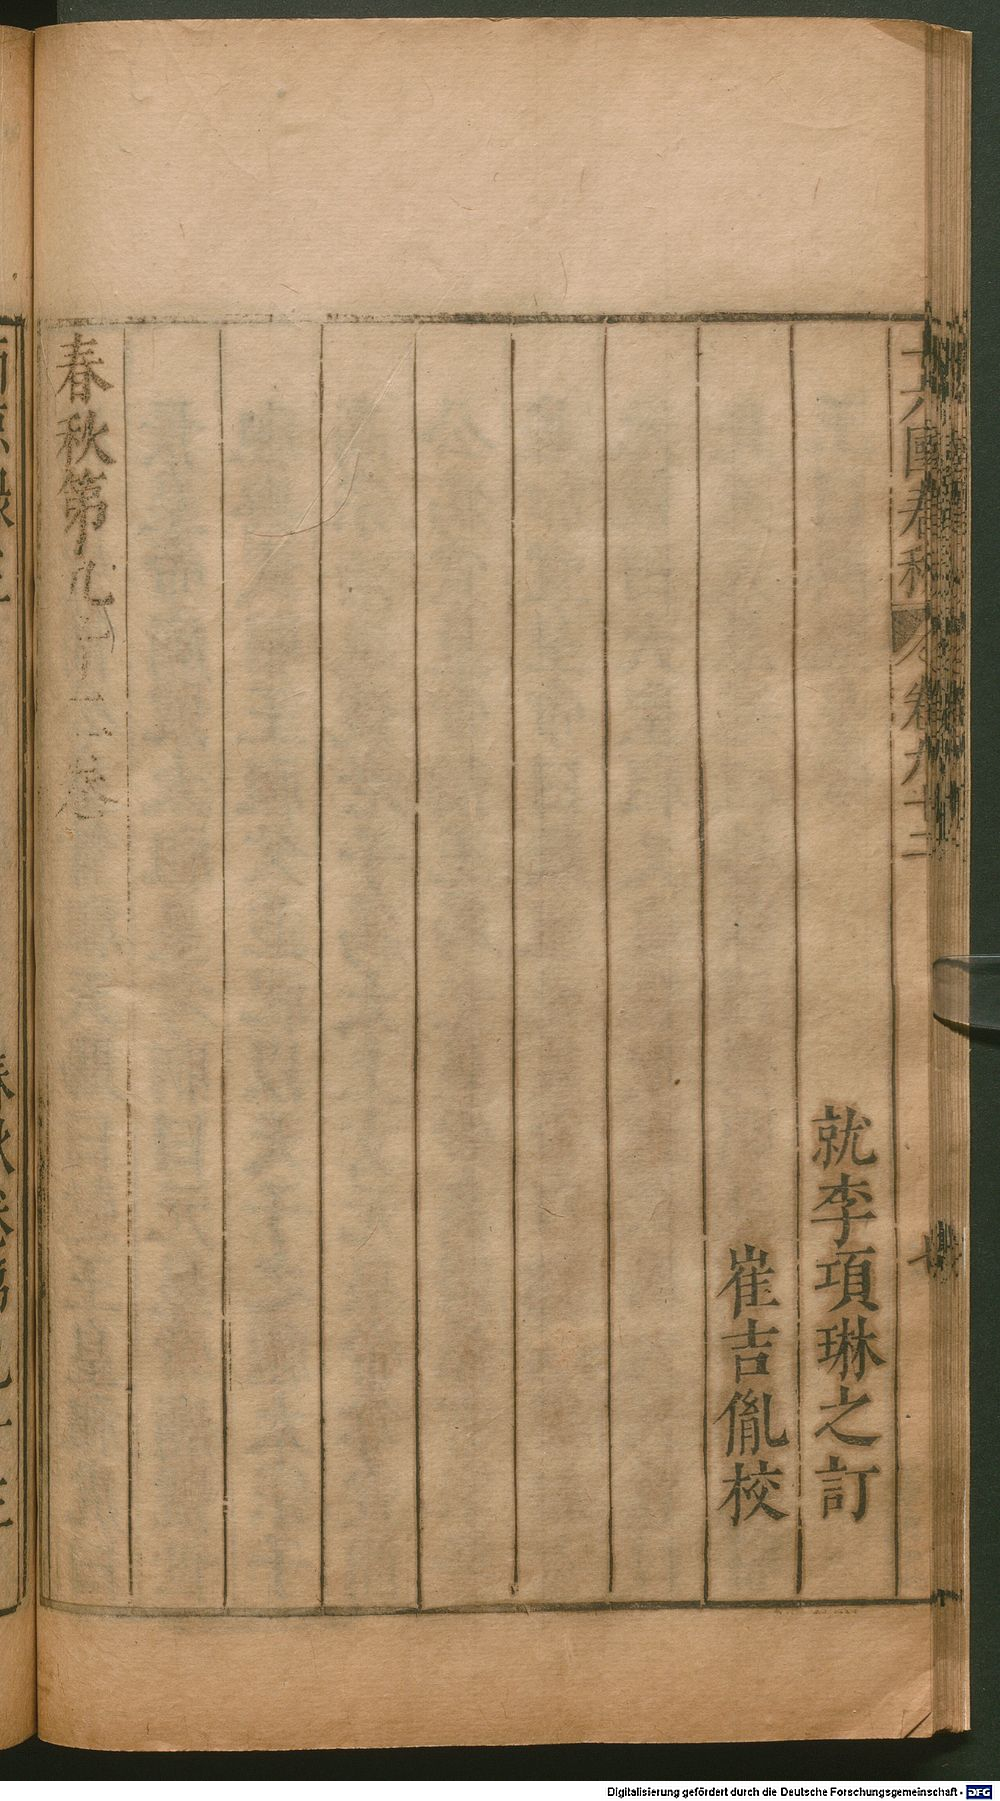 十六國春秋 卷九十二
七
就李項琳之訂
崔吉胤校
春秋第九十二卷
Digitalisierung gefördert durch die Deutsche Forschungsgemeinschaft - DFG